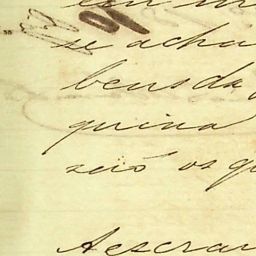 se acha
bens da
quina
seis os q
A escrav